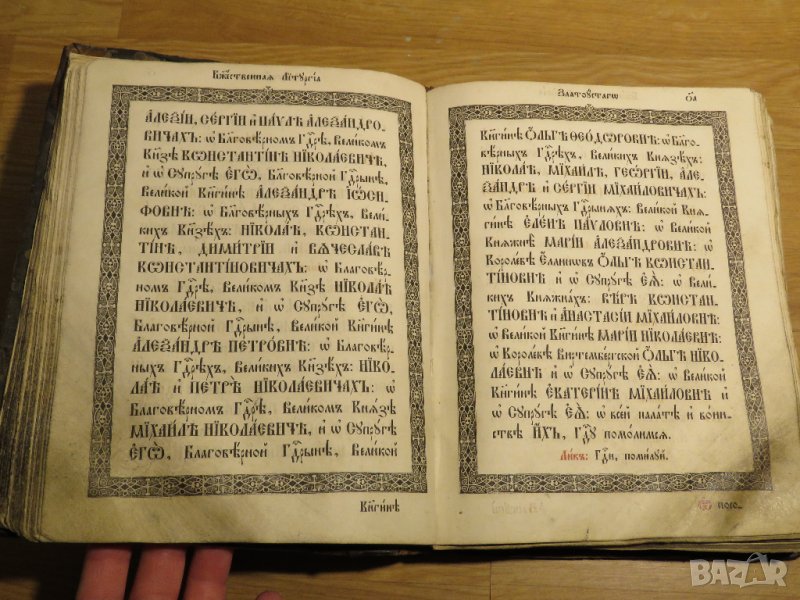 Бжⷭ҇твеннаѧ Літꙋргіа
АЛЕѮІ́И, СЕ́РГІИ и҆ ПА́ѴЛѢ АЛЕѮА́НДРО-
ВИЧАХЪ: ѡ҆ Благовѣ́рномъ Гдⷭ҇рѣ, Вели́комъ
Кн҃зѣ КѠНСТАНТІ́НѢ НІКОЛА́ЕВИЧѢ,
и҆ ѡ҆ Сꙋпрꙋ́гѣ Є҆ГѠ̀, Благовѣ́рной Гдⷭ҇рынѣ,
Вели́кой Кн҃ги́нѣ АЛЕѮА́НДРѢ ІѠ́СИ-
ФОВНѢ: ѡ҆ Благовѣ́рныхъ Гдⷭ҇рѣхъ, Вели́-
кихъ Кн҃зѣхъ: НІКОЛА́Ѣ, КѠНСТАН-
ТІ́НѢ, ДИМИ́ТРІИ и҆ ВѦЧЕСЛА́ВѢ
КѠНСТАНТІ́НОВИЧАХЪ: ѡ҆ Благовѣ́р-
номъ Гдⷭ҇рѣ, Вели́комъ Кн҃зѣ НІКОЛА́Ѣ
НІКОЛА́ЕВИЧѢ, и҆ ѡ҆ Сꙋпрꙋ́гѣ Є҆ГѠ̀,
Благовѣ́рной Гдⷭ҇рынѣ, Вели́кой Кн҃ги́нѣ
АЛЕѮА́НДРѢ ПЕТРО́ВНѢ: ѡ҆ Благовѣ́р-
ныхъ Гдⷭ҇рѣхъ, Вели́кихъ Кн҃зѣхъ: НІКО-
ЛА́Ѣ и҆ ПЕТРѢ̀ НІКОЛА́ЕВИЧАХЪ: ѡ҆
Благовѣ́рномъ Гдⷭ҇рѣ, Вели́комъ Кнѧ́зѣ
МІХАИ́ЛѢ НІКОЛА́ЕВИЧѢ, и҆ ѡ҆ Сꙋпрꙋ́гѣ
Є҆ГѠ̀, Благовѣ́рной Гдⷭ҇рынѣ, Вели́кой
Кн҃ги́нѣ
Златоꙋ́стагѡ
о҃а
Кн҃ги́нѣ Ѻ҆́ЛЬГѢ ѲЕОДѠ́РОВНѢ: ѡ҆ Благо-
вѣ́рныхъ Гдⷭ҇рѣхъ, Вели́кихъ Кнѧзѣ́хъ:
НІКОЛА́Ѣ, МІХАИ́ЛѢ, ГЕѠ́РГІИ, АЛЕ-
ѮА́НДРѢ и҆ СЕ́РГІИ МІХАИ́ЛОВИЧАХЪ:
ѡ҆ Благовѣ́рныхъ Гдⷭ҇рынѧхъ: Вели́кой Кнѧ-
ги́нѣ Є҆ЛЕ́НѢ ПА́ѴЛОВНѢ: ѡ҆ Вели́кой
Кнѧжнѣ̀ МАРІ́И АЛЕѮА́НДРОВНѢ: ѡ҆
Короле́вѣ Є҆́ллинѡвъ Ѻ҆́ЛЬГѢ КѠНСТАН-
ТІ́НОВНѢ и҆ ѡ҆ Сꙋпрꙋ́гѣ Є҆Ѧ̀: ѡ҆ Вели́-
кихъ Кнѧжна́хъ: ВѢ́РѢ КѠНСТАН-
ТІ́НОВНѢ и҆ АНАСТАСІ́И МІХАИ́ЛОВНѢ:
ѡ҆ Вели́кой Кн҃ги́нѣ МАРІ́И НІКОЛА́ЕВНѢ:
ѡ҆ Короле́вѣ Виртембе́ргской Ѻ҆́ЛЬГѢ НІКО-
ЛА́ЕВНѢ и҆ ѡ҆ Сꙋпрꙋ́гѣ Є҆Ѧ̀: ѡ҆ Вели́кой
Кн҃ги́нѣ Є҆КАТЕРІ́НѢ МІХАИ́ЛОВНѢ и҆
ѡ҆ Сꙋпрꙋ́гѣ Є҆Ѧ̀: ѡ҆ все́й пала́тѣ и҆ во́ин-
ствѣ И҆́ХЪ, Гдⷭ҇ꙋ помо́лимсѧ.
Ли́къ: Гдⷭ҇и, поми́лꙋй.
BAZAR.bg